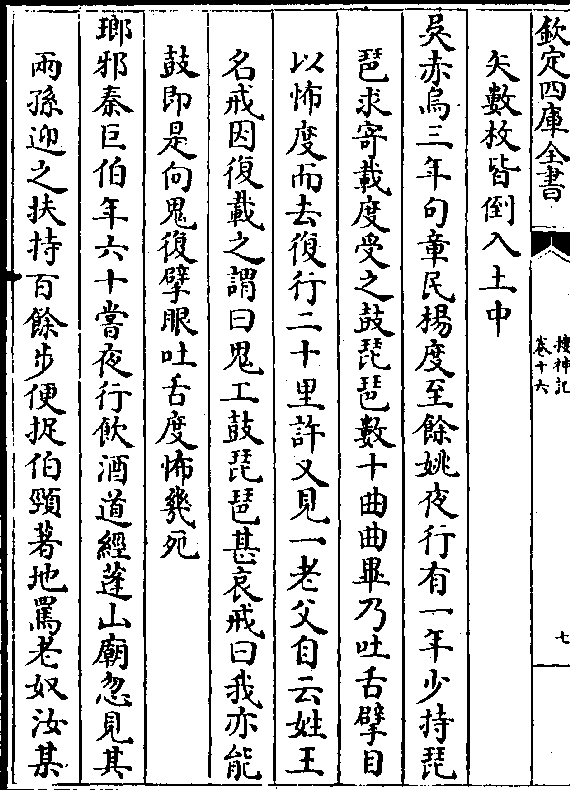 欽定四庫全書
搜神記
卷十六
七
矢數枚皆倒入土中
吳赤烏三年句章民楊度至餘姚夜行有一年少持琵
琶求寄載度受之鼓琵琶數十曲曲畢乃吐舌擘目
以怖度而去復行二十里許又見一老父自云姓王
名戒因復載之謂曰鬼工鼓琵琶甚哀戒曰我亦能
鼓即是向鬼復擘眼吐舌度怖幾死
瑯邪秦巨伯年六十嘗夜行飲酒道經蓬山廟忽見其
兩孫迎之扶持百餘步便捉伯頸著地罵老奴汝某